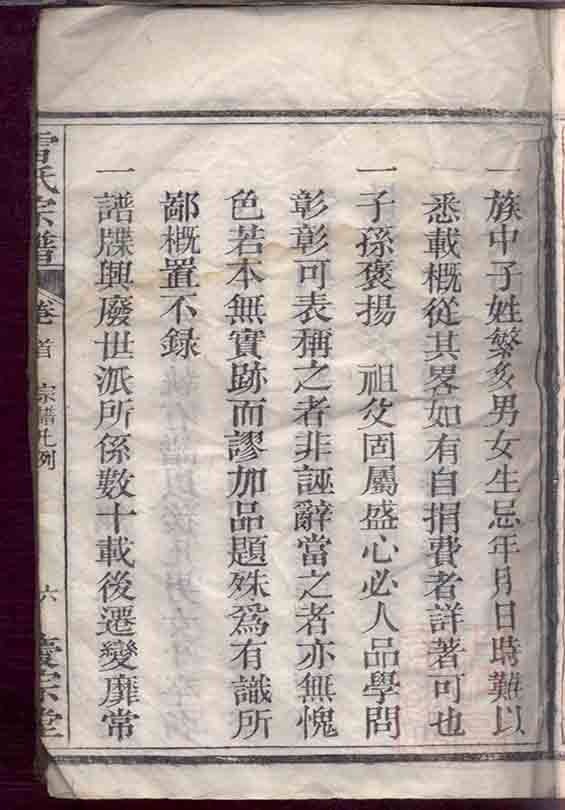 一族中子姓繁多男女生忌年月日時難以
悉載概從其畧如有自捐費者詳著可也
一子孫褒揚　祖父固屬盛心必人品學問
彰彰可表稱之者非誣辭當之者亦無愧
色若本無實跡而謬加品題殊為有識所
鄙概置不錄
一譜牒興廢世派所係數十載後遷變靡常
氏宗譜
卷首
宗譜凡例
六
慶宗堂